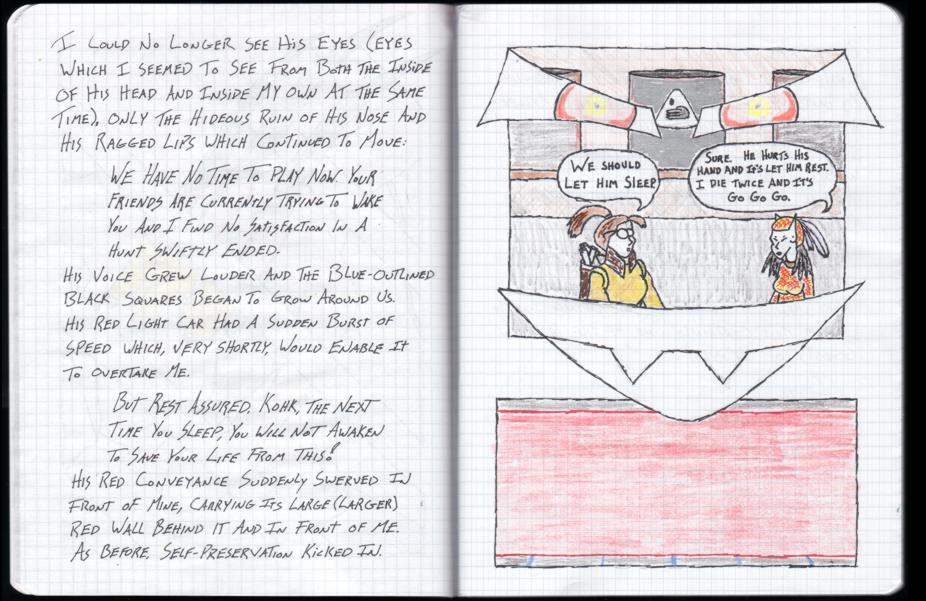 I COULD NO LONGER SEE HIS EYES (EYES
WHICH I SEEMED TO SEE FROM BOTH THE INSIDE
OF HIS HEAD AND INSIDE MY OWN AT THE SAME
TIME), ONLY THE HIDEOUS RUIN OF HIS NOSE AND
HIS RAGGED LIPS WHICH CONTINUED TO MOVE:
WE HAVE NO TIME TO PLAY NOW. YOUR
FRIENDS ARE CURRENTLY TRYING TO WAKE
YOU AND I FIND NO SATISFACTION IN A
HUNT SWIFTLY ENDED.
HIS VOICE GREW LOUDER AND THE BLUE-OUTLINED
BLACK SQUARES BEGAN TO GROW AROUND US.
HIS RED LIGHT CAR HAD A SUDDEN BURST OF
SPEED WHICH, VERY SHORTLY, WOULD ENABLE IT
TO OVERTAKE ME.
BUT REST ASSURED, KOHK, THE NEXT
TIME YOU SLEEP, YOU WILL NOT AWAKEN
TO SAVE YOUR LIFE FROM THIS!
HIS RED CONVEYANCE SUDDENLY SWERVED IN
FRONT OF MINE, CARRYING ITS LARGE (LARGER)
RED WALL BEHIND IT AND IN FRONT OF ME.
AS BEFORE, SELF-PRESERVATION KICKED IN.
WE SHOULD
LET HIM SLEEP
SURE. HE HURTS HIS
HAND AND IT'S LET HIM REST.
I DIE TWICE AND IT'S
GO GO GO.